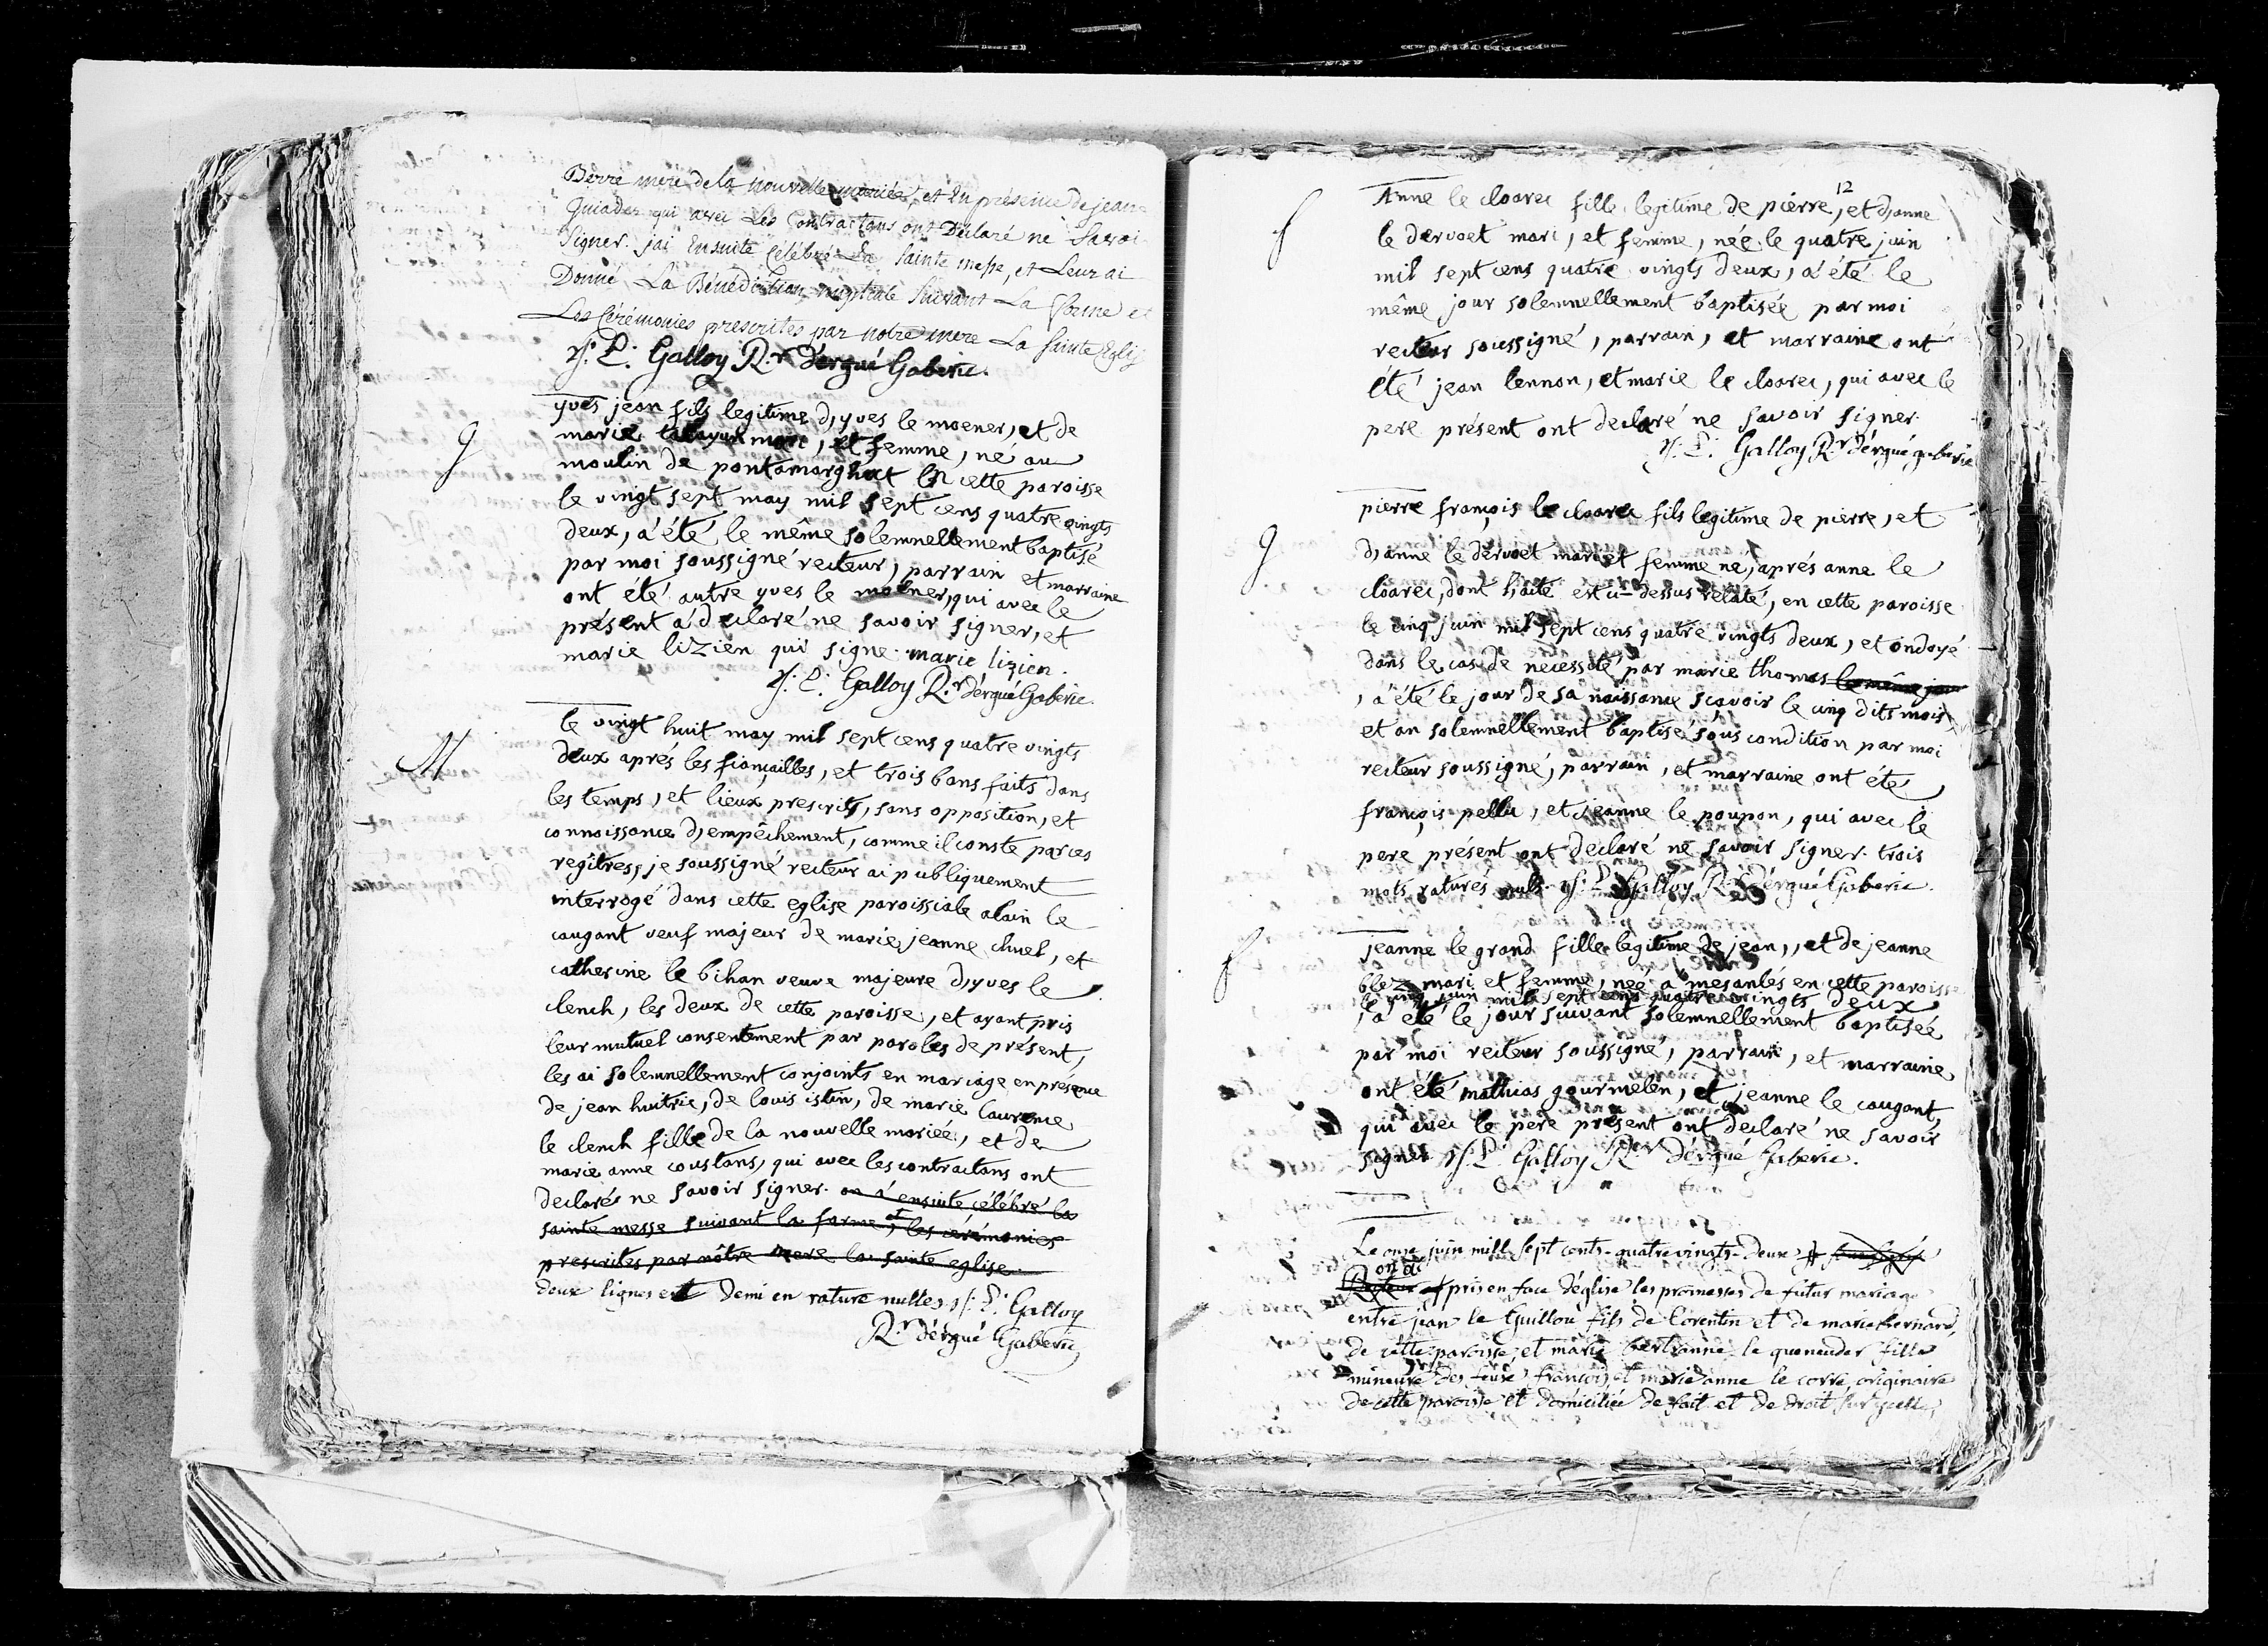 Berre mere de la nouvelle mariée, et En présence de jean
Quiader qui avec Les Contractans ont Déclaré ne Savoi
Signer. jai Ensuite Célébré La Sainte messe, et Leur ai
Donné La Bénédiction nuptiale Suivant La forme et
Les Cérémonies prescrites par notre mere La Sainte Eglis
Galloy R.r d'ergué Gaberic.
yves jean fils legitime d,yves le moener, et de
g
marie mari, et femme, né au
moulin de pontamarghat En cette paroisse
le vingt sept may mil sept cens quatre vingts
deux, a été le même solemnellement baptisé
par moi soussigné recteur, parrain et marraine
ont été autre yves le moener, qui avec le
présent a declaré ne savoir signer, et
marie lizien qui signe. marie lizien.
Galloy R.r d'ergué Gaberic.
M
le vingt huit may mil sept cens quatre vingts
deux aprés les fiançailles, et trois bans faits dans
les temps, et lieux prescrits, sans opposition, et
connoissance d,empêchement, comme il conste par ces
regîtres, je soussigné recteur ai publiquement
interrogé dans cette eglise paroissiale alain le
caugant veuf majeur de marie jeanne, et
catherine le bihan veuve majeure d,yves le
clench, les deux de cette paroisse, et ayant pris
leur mutuel consentement par paroles de présent,
les ai solemnellement conjoints en mariage en présence
de jean huitric, de louis istin, de marie laurence
le clench fille de la nouvelle mariée, et de
marie anne coustans, qui avec les contractans ont
declarés ne savoir signer. on a ensuite célébré la
sainte messe suivant la forme et les cérémonies
prescrites par nôtre mere la sainte eglise.
deux lignes et demi en rature nulles Galloy
R.r d'ergué Gaberic
12
Anne le cloarec fille legitime de pierre, et d,anne
f
le dervoet mari, et femme, née le quatre juin
mil sept cens quatre vingts deux, a été le
même jour solemnellement baptisée par moi
recteur soussigné, parrain, et marraine ont
été jean lennon, et marie le cloarec, qui avec le
pere présent ont declaré ne savoir signer.
Galloy R.r d'ergué gaberic
pierre françois le cloarec fils legitime de pierre, et
g
d,anne le dervoet mari et femme né, aprés anne le
cloarec, dont l,acte est ci-dessus relaté, en cette paroisse
le cinq juin mil sept cens quatre vingts deux, et ondoyé
dans le cas de necessité par marie thomas le même jour
, a été le jour de sa naissance sçavoir le cinq dits mois
et an solemnellement baptisé sous condition par moi
recteur soussigné, parrain, et marraine ont été
françois pellu, et jeanne le poupon, qui avec le
pere présent ont declaré ne savoir signer. trois
mots raturés nuls. Galloy R.r d'ergué Gaberic.
jeanne le grand fille legitime de jean, et de jeanne
f
blez mari et femme, née à mesanlés en cette paroisse
le cinq juin mil sept cens quatre vingts deux
, a été le jour suivant solemnellement baptisée
par moi recteur soussigné, parrain, et marraine
ont été mathias gourmelen, et jeanne le caugant,
qui avec le pere présent ont declaré ne savoir
signer Galloy R.r d'ergué Gaberic.
Le onze juin mill sept cents-quatre vingts-deux
on a
Recteur pris en face d'église les promesses de futur mariage
entre jean le Guillou fils de Corentin et de marie bernard,
de cette paroisse, et marie bertranne le quoneuder fille
mineure des feus françois et marie anne le corre originaire
de cette paroisse et domiciliée de fait et de droit sur icelle,